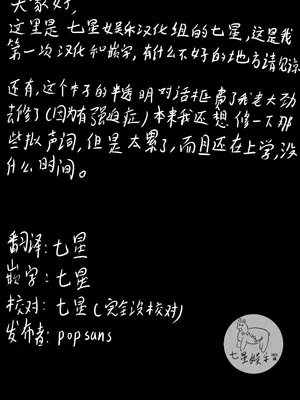 大家好,
这里是 七星娱乐汉化组的七星,这是我
第一次汉化和嵌字,有什么不好的地方请见谅
还有,这个本子的半透明对话框费了我老大劲
去修了(因为有强迫症)本来我还想修一下那
些拟声词,但是太累了,而且还在上学,没
什么时间。
翻译:七星
嵌字:七星
校对:七星(完全没校对)
发布者:popsans
七星娱乐